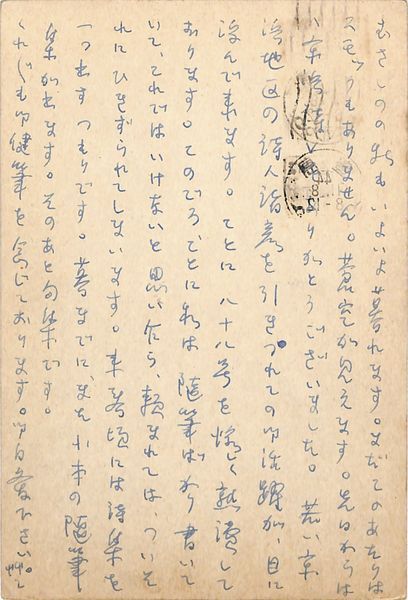 むさしのの秋もいよいよ暮れます。まだこのあたりは
スモッグもありません。蒼空が見えます。先日からは
ありがとうございました。若い京
浜地区の詩人諸彦を引きつれての御活躍が、目に
浮んで来ます。ことに八十八号を快く熟讀して
おります。このごろ、ことに私は随筆ばかり書いて
いて、これではいけないと思い乍ら、頼まれては、ついそ
れにひきずられてしまいます。来春頃には詩集を
一つ出すつもりです。暮までに、また小本の随筆
集が出ます。そのあと句集です。
くれぐれも御健筆を念じております。御自愛下さい。